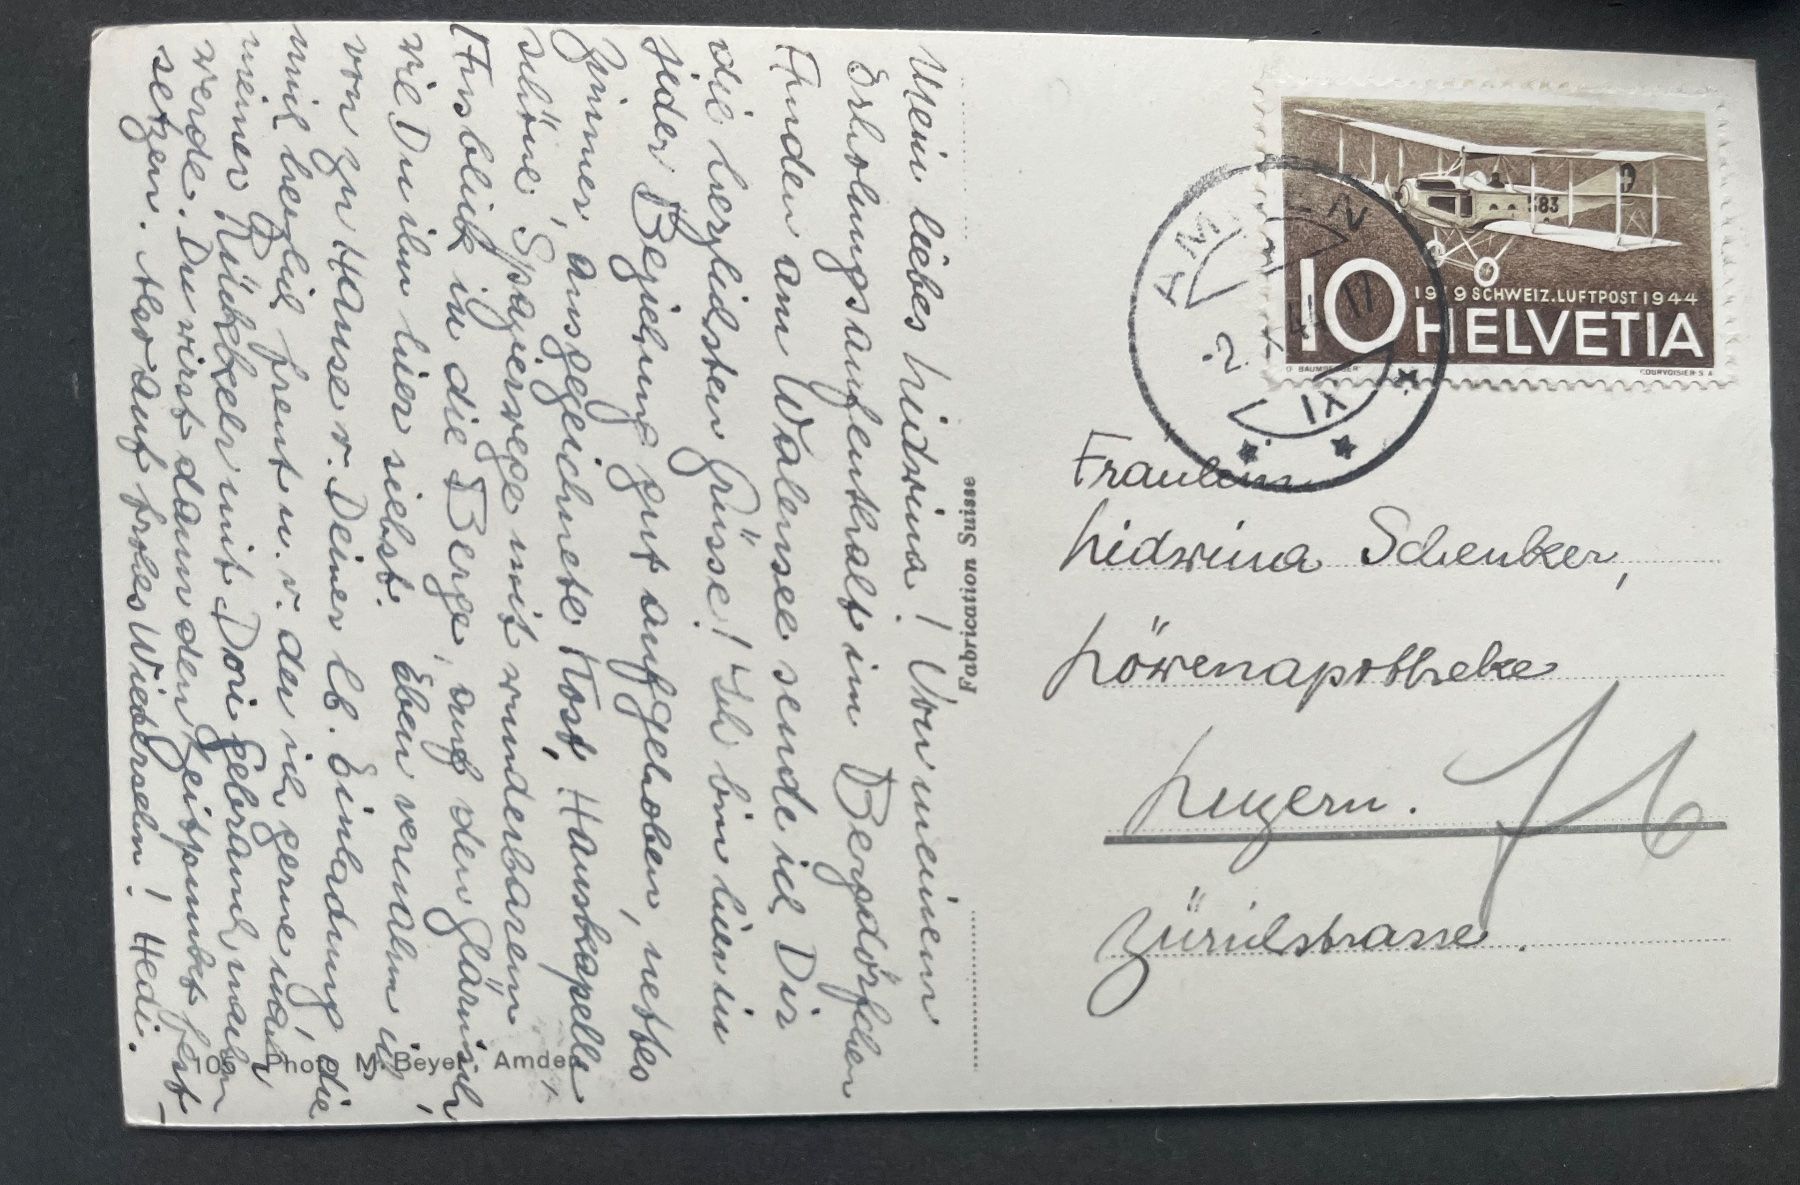 Mein liebes Lidwina! Von meinem
Erholungsaufenthalt im Bergdörfchen
Amden am Walensee sende ich Dir
die herzlichsten Grüsse! Ich bin hier in
jeder Beziehung gut aufgehoben, nettes
Zimmer, ausgezeichnete Kost, Hauskapelle
schöne Spazierwege mit wunderbarem
Ausblick in die Berge, auf den Glärnisch,
wie Du ihn hier siehst. Eben vernahm ich
von zu Hause v. Deiner lb. Einladung, die
mich herzlich freut u. v. der ich gerne nach
meiner Rückkehr mit Dori Gebrauch machen
werde. Du wirst dann den Zeitpunkt fest-
setzen. Also auf frohes Wiedersehn! Hedi.
105 Phot. M. Beyer Amden
Fabrication Suisse
AMDEN
-2. X. 44 17
XI
583
10
1919 SCHWEIZ. LUFTPOST 1944
HELVETIA
O. BAUMBERGER
COURVOISIER S.A.
Fräulein
Lidwina Schenker,
Löwenapotheke
Luzern.
Zürichstrasse.